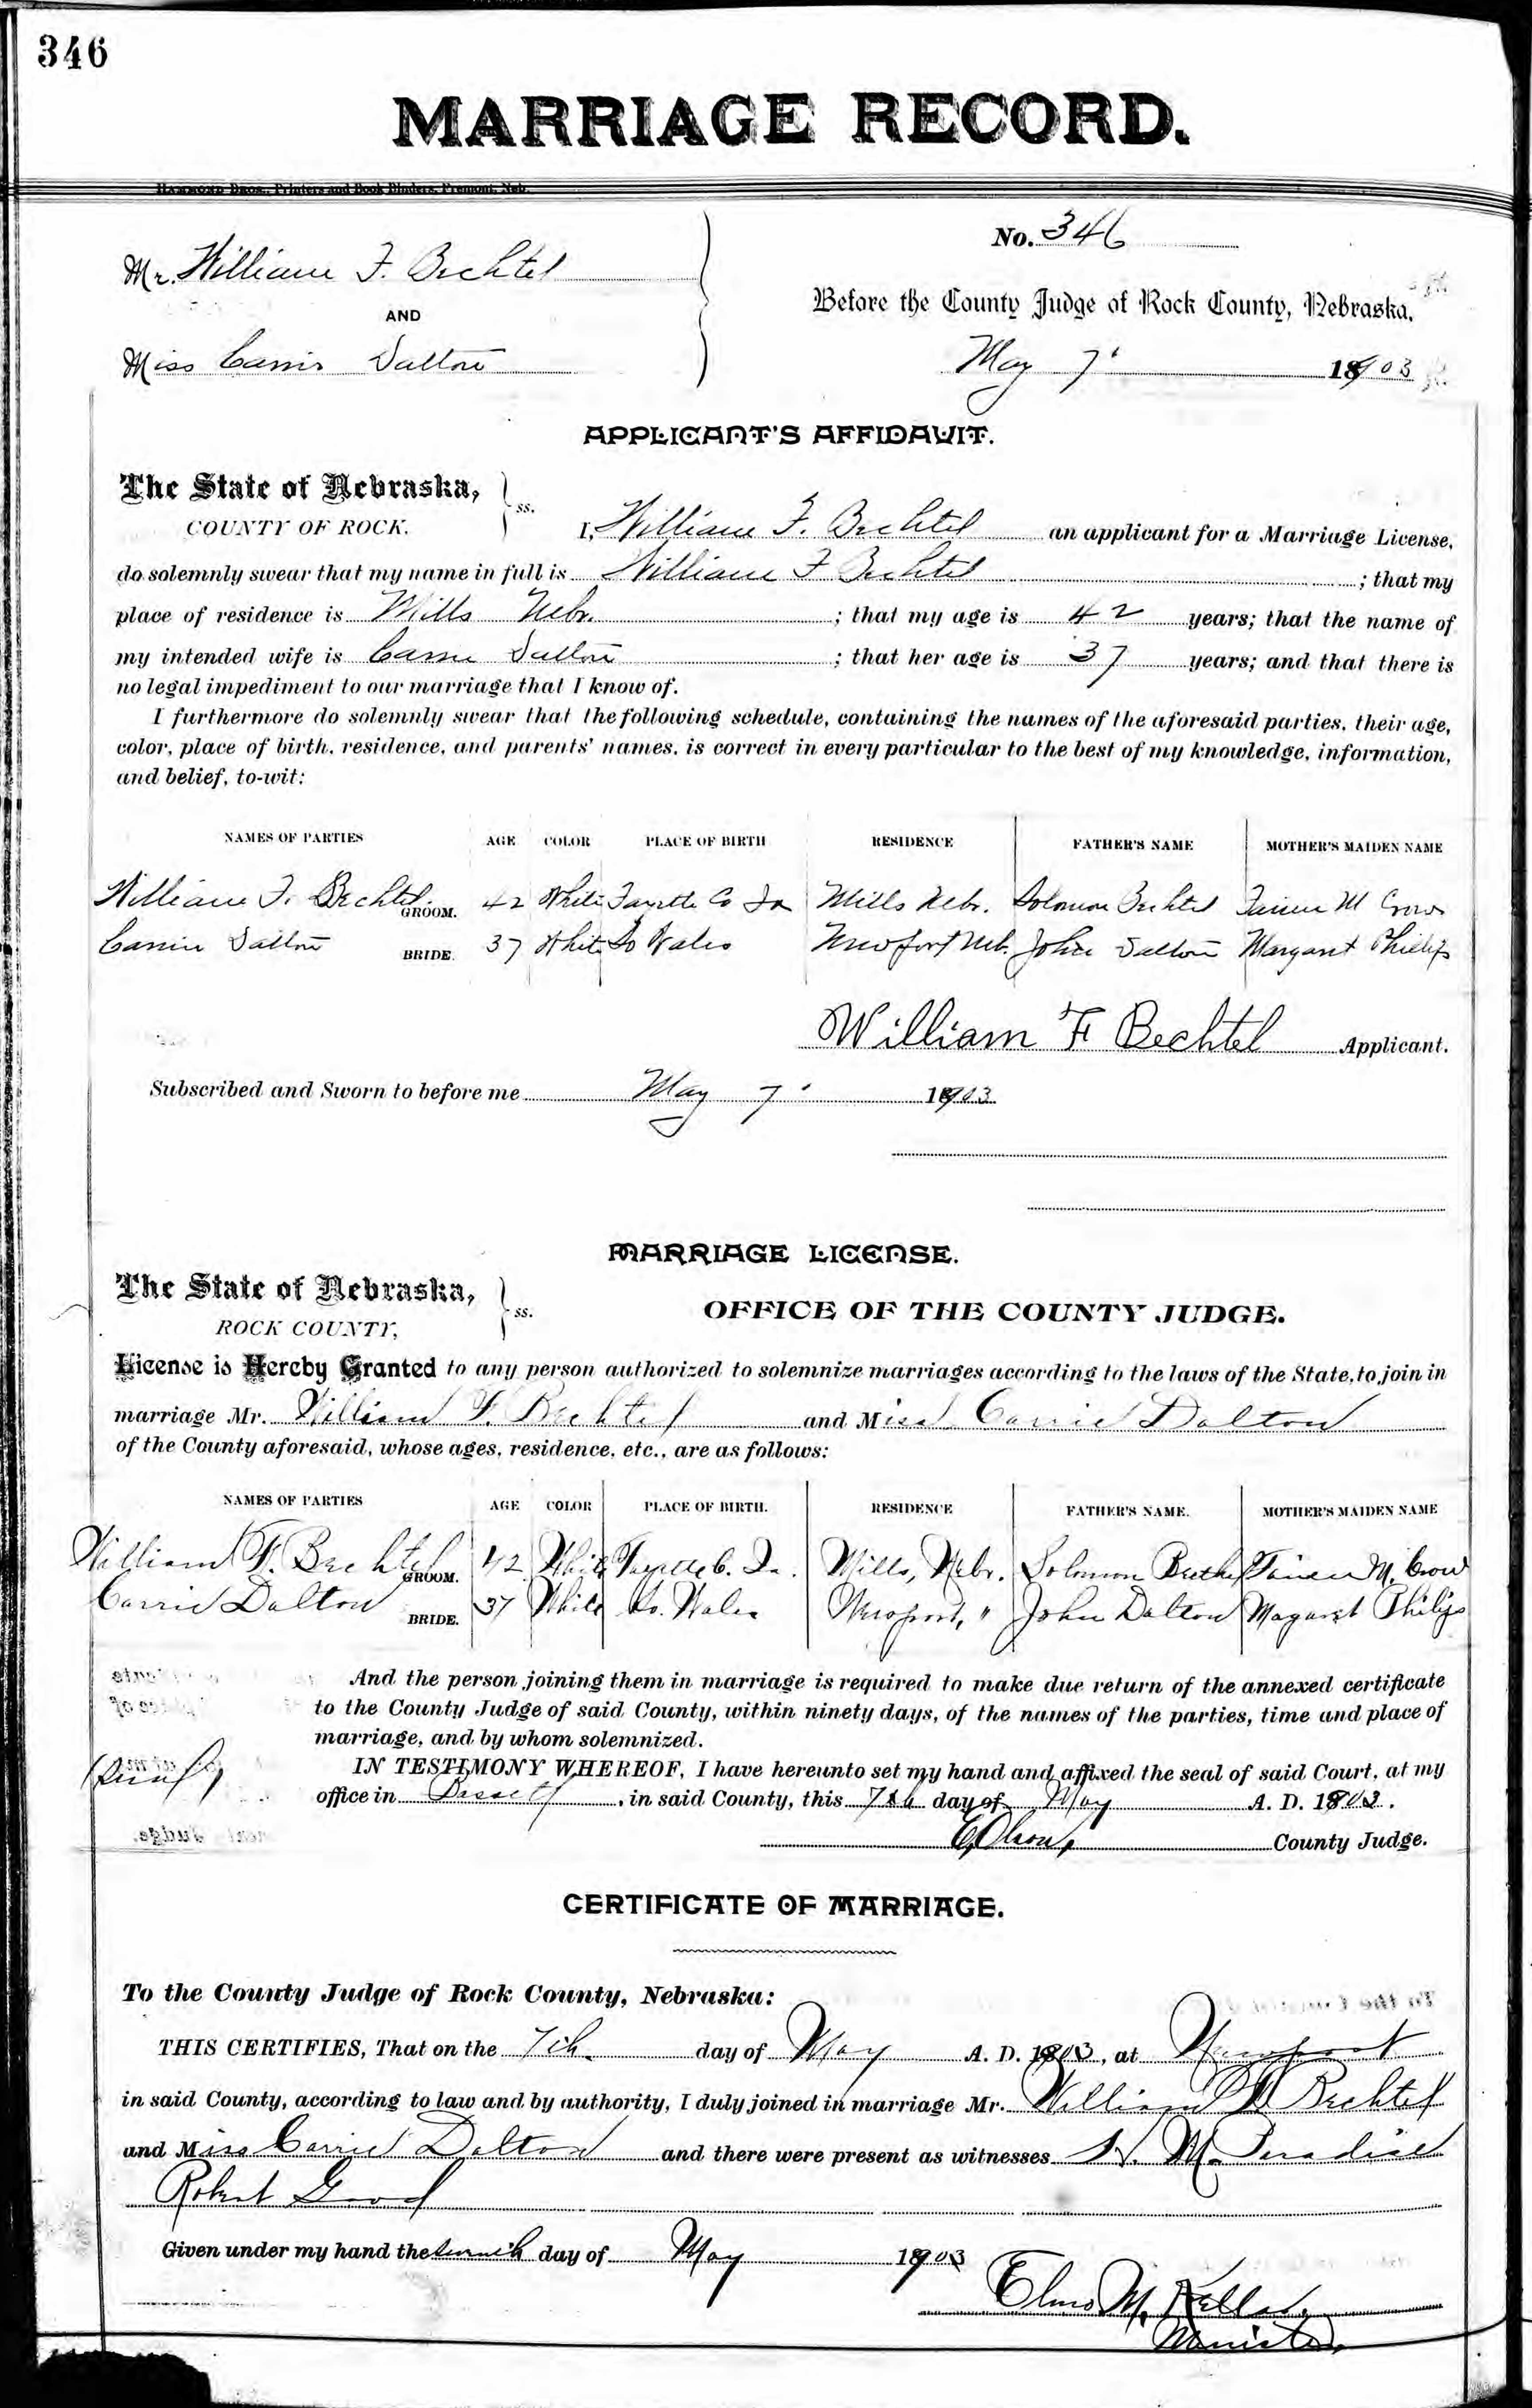 346
MARRIAGE RECORD.
HAMMOND BROS., Printers and Book Binders, Fremont, Neb.
No. 346
Mr. William F. Bechtel
AND
Miss Carrie Dalton
Before the County Judge of Rock County, Nebraska,
May 7' 1903
APPLICANT'S AFFIDAVIT.
The State of Nebraska, ss.
COUNTY OF ROCK.
I, William F. Bechtel an applicant for a Marriage License,
do solemnly swear that my name in full is William F Bechtel ; that my
place of residence is Mills Nebr. ; that my age is 42 years; that the name of
my intended wife is Carrie Dalton ; that her age is 37 years; and that there is
no legal impediment to our marriage that I know of.
I furthermore do solemnly swear that the following schedule, containing the names of the aforesaid parties, their age,
color, place of birth, residence, and parents' names, is correct in every particular to the best of my knowledge, information,
and belief, to-wit:
NAMES OF PARTIES AGE COLOR PLACE OF BIRTH RESIDENCE FATHER'S NAME MOTHER'S MAIDEN NAME
William F. Bechtel GROOM. 42 White Fayette Co Ia Mills Nebr. Solomon Bechtel M Crow
Carrie Dalton BRIDE. 37 White So Wales Newport Neb. John Dalton Margaret Phillips
William F Bechtel Applicant.
Subscribed and Sworn to before me May 7' 1903
MARRIAGE LICENSE.
The State of Nebraska, ss.
ROCK COUNTY,
OFFICE OF THE COUNTY JUDGE.
License is Hereby Granted to any person authorized to solemnize marriages according to the laws of the State, to join in
marriage Mr. William F. Bechtel and Miss Carrie Dalton
of the County aforesaid, whose ages, residence, etc., are as follows:
NAMES OF PARTIES AGE COLOR PLACE OF BIRTH. RESIDENCE FATHER'S NAME. MOTHER'S MAIDEN NAME
William F. Bechtel GROOM. 42 White Fayette C. Ia. Mills, Nebr. Solomon Bechtel M. Crow
Carrie Dalton BRIDE. 37 White So. Wales Newport, " John Dalton Magaret Philips
And the person joining them in marriage is required to make due return of the annexed certificate
to the County Judge of said County, within ninety days, of the names of the parties, time and place of
marriage, and by whom solemnized.
(Seal)
IN TESTIMONY WHEREOF, I have hereunto set my hand and affixed the seal of said Court, at my
office in Bassett , in said County, this 7th day of May A. D. 1903.
E. Olson, County Judge.
CERTIFICATE OF MARRIAGE.
To the County Judge of Rock County, Nebraska:
THIS CERTIFIES, That on the 7th. day of May A. D. 1903, at Newport
in said County, according to law and by authority, I duly joined in marriage Mr. William F. Bechtel
and Miss Carrie Dalton and there were present as witnesses M. Paradise
Robert Good
Given under my hand the seventh day of May 1903
M. Kellar,
Minister,